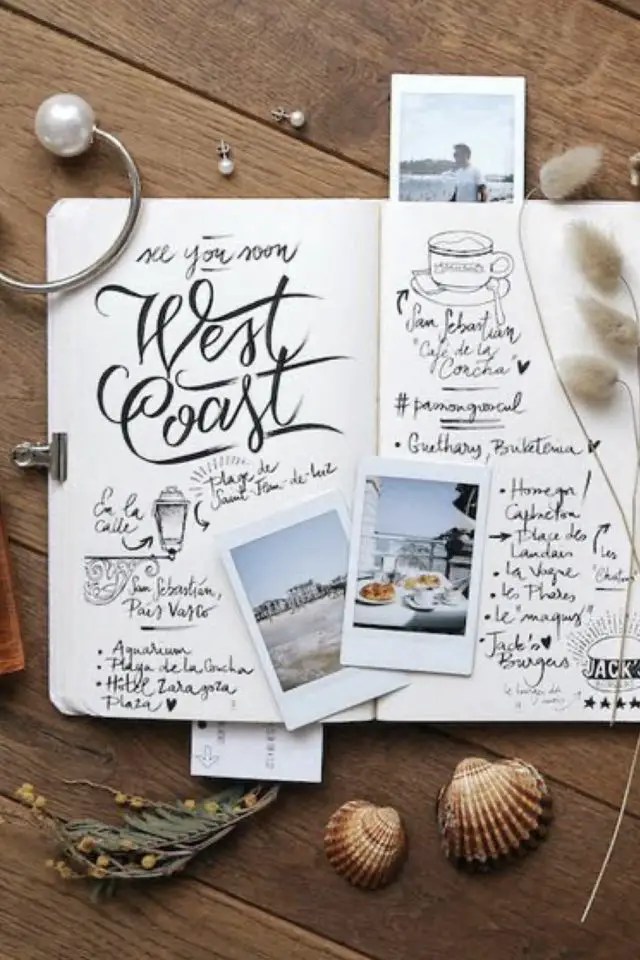 see you soon
West
Coast
plage de
Saint Jean-de-luz
En la
calle
San Sebastián,
País Vasco
• Aquarium
• Playa de la Concha
• Hôtel Zaragoza
Plaza ♥
San Sebastián
"Café de la
Concha" ♥
• Guethary,
• Hossegor
Capbreton
Place des
Landais
• La Vague
• les Phares
• le "maquis"
• Jack's ♥
Burgers
Les
JACK'S
★★★★